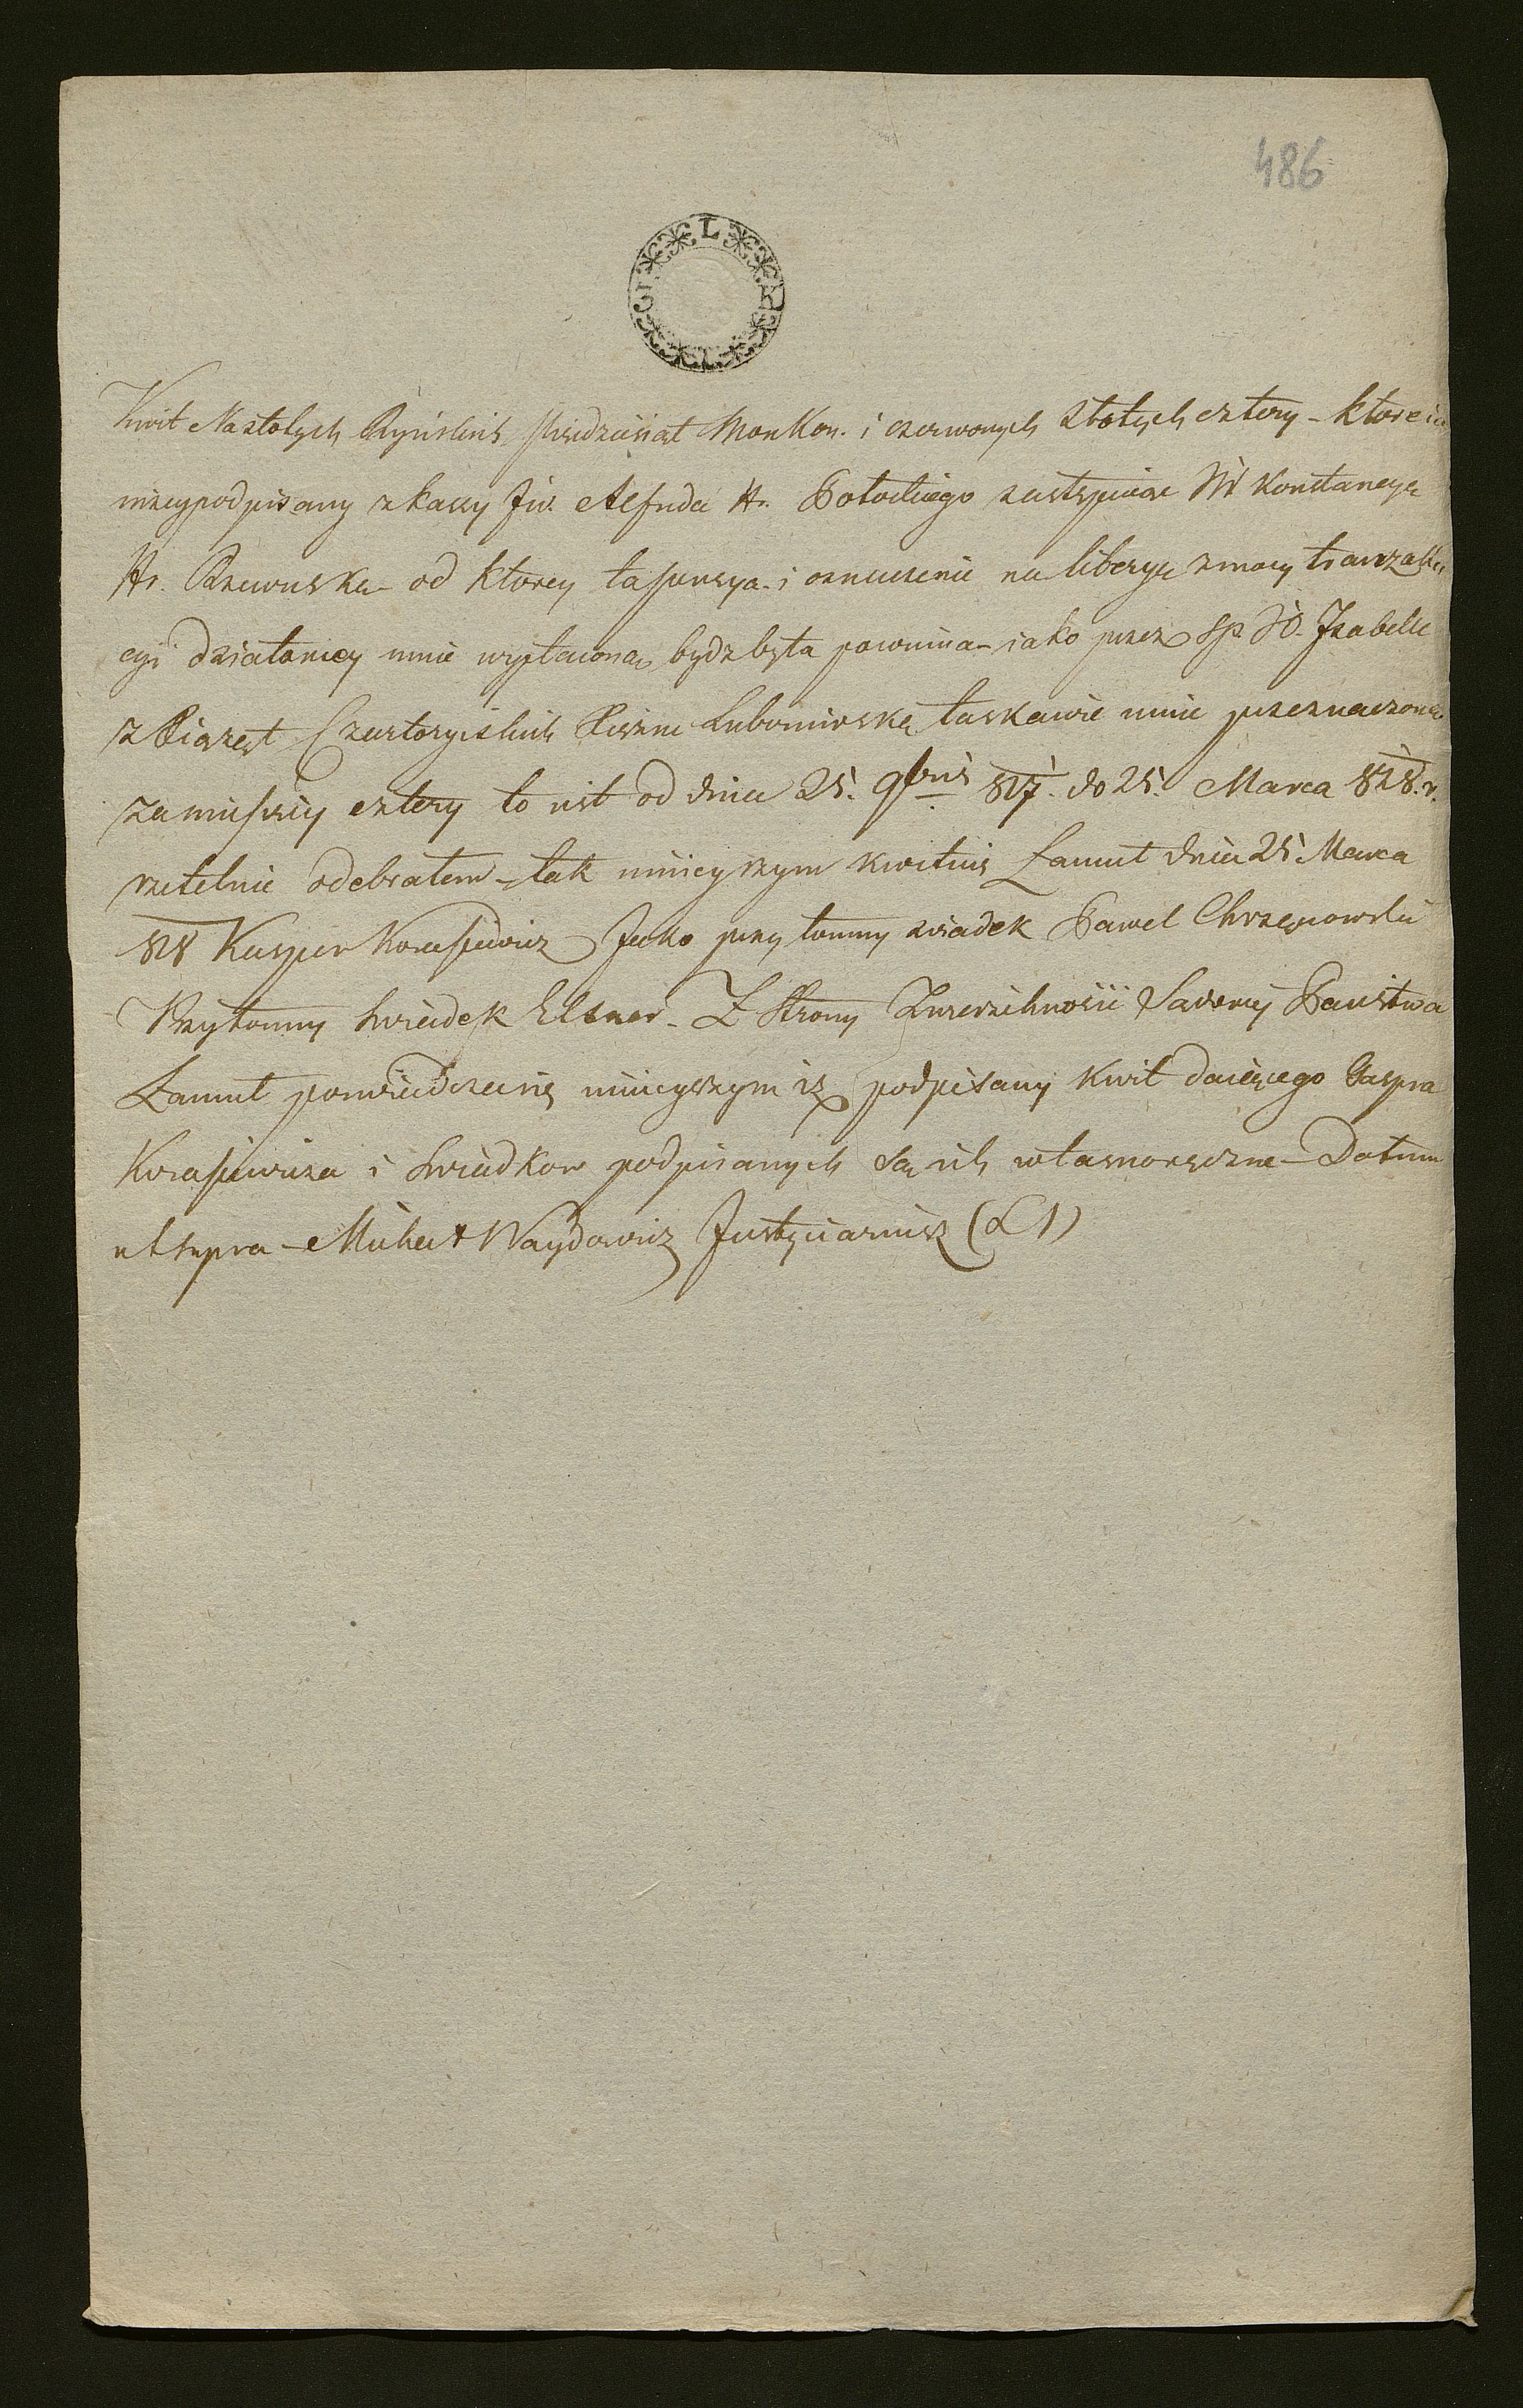 486
L K I C
Kwit Na złotych Ryńskich pięćdziesiąt Mon Kon. i czerwonych złotych cztery – które ia
niżeypodpisany z kassy Jw. Alfreda Hr. Potockiego zastępuiąc JW Konstancyą
Hr. Rzewuską – od ktorey ta pensya i oznaczenie na liberyą z mocy tranzak
cyi działowey mnie wypłacona bydz była powinna – iako przez Sp. JO. Izabellę
z Xiążąt Czartoryiskich Xiężnę Lubomirską łaskawie mnie przeznaczona
za miesięcy cztery to iest od dnia 25. 9bris 817. do 25. Marca 818. r.
rzetelnie odebrałem – tak ninieyszym kwituię Łancut dnia 25 Marca
818 Kasper Korasiewicz Jako przytomny świadek Pawel Chrzanowski
Przytomny Swiadek Elsner – Z Strony Zwierzchności Sądowey Państwa
Łancut poswiadcza się ninieyszym iż podpisany Kwit daiącego Gaspra
Korasiewicza i Swiadkow podpisanych są ich własnoręczne – Datum
ut supra – Michał Waydowicz Justycyariusz (LS)